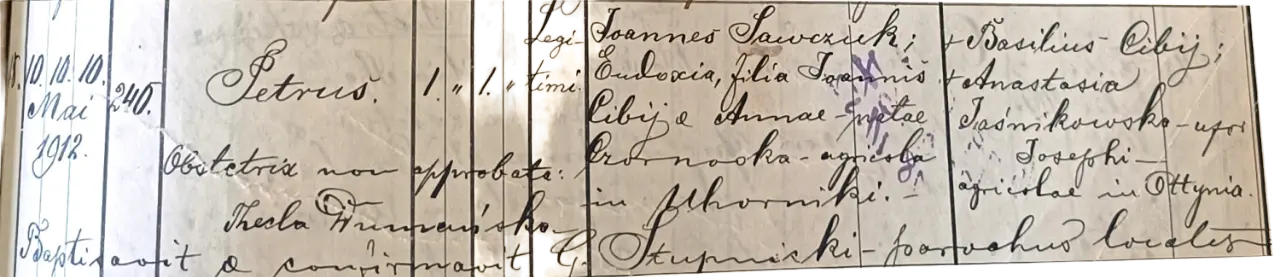 Legi- Joannes Sawczuk; + Basilius Cibij;
15. 10. 10. 10. Petrus. 1. " 1. " timi. Eudoxia, filia Joannis + Anastasia
Mai 240. Cibij & Annae natae Jaśnikowska - uxor
1912. Czornoska - agricola Josephi -
Obstetrix non approbata: in Uhorniki. - agricolae in Ottynia.
Thecla
Baptisavit & confirmavit G. Stupnicki - parochus localis